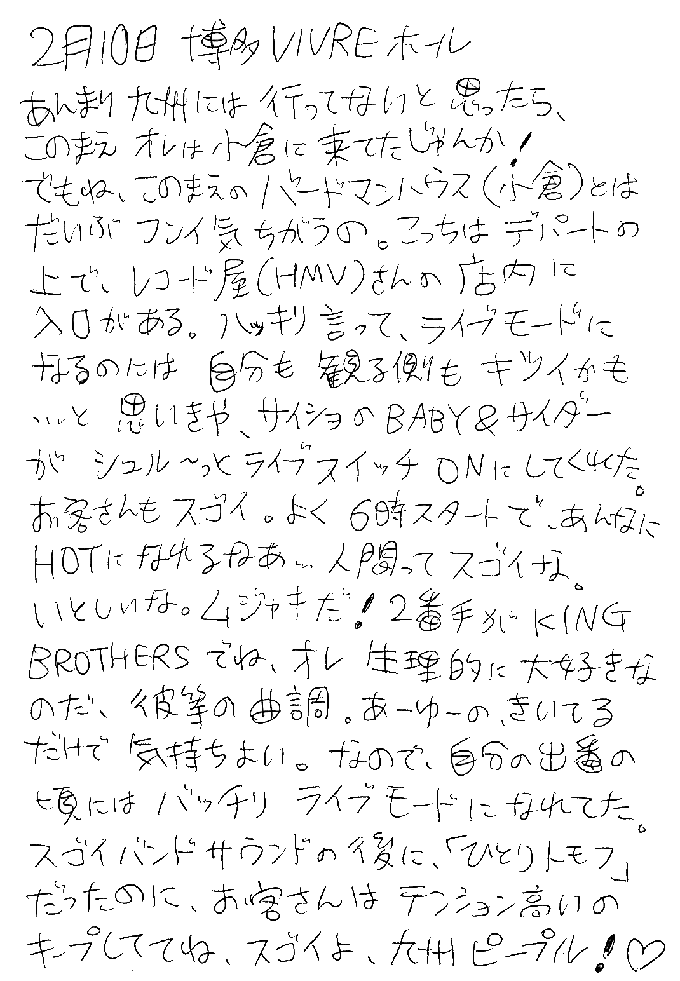 2月10日 博多VIVREホール
あんまり九州には行ってないと思ったら、
このまえオレは小倉に来てたじゃんか!
でもね、このまえのバードマンハウス(小倉)とは
だいぶフンイ気ちがうの。こっちはデパートの
上で、レコード屋(HMV)さんの店内に
入口がある。ハッキリ言って、ライブモードに
なるのには自分も観る側もキツイかも
…と思いきや、サイショのBABY&サイダー
がシュル〜っとライブスイッチONにしてくれた。
お客さんもスゴイ。よく6時スタートで、あんなに
HOTになれるなあ…人間ってスゴイな。
いとしいな。ムジャキだ!2番手がKING
BROTHERSでね、オレ生理的に大好きな
のだ、彼等の曲調。あーゆーの、きいてる
だけで気持ちよい。なので、自分の出番の
頃にはバッチリライブモードになれてた。
スゴイバンドサウンドの後に、「ひとりトモフ」
だったのに、お客さんはテンション高いの
キープしててね、スゴイよ、九州ピープル!♡